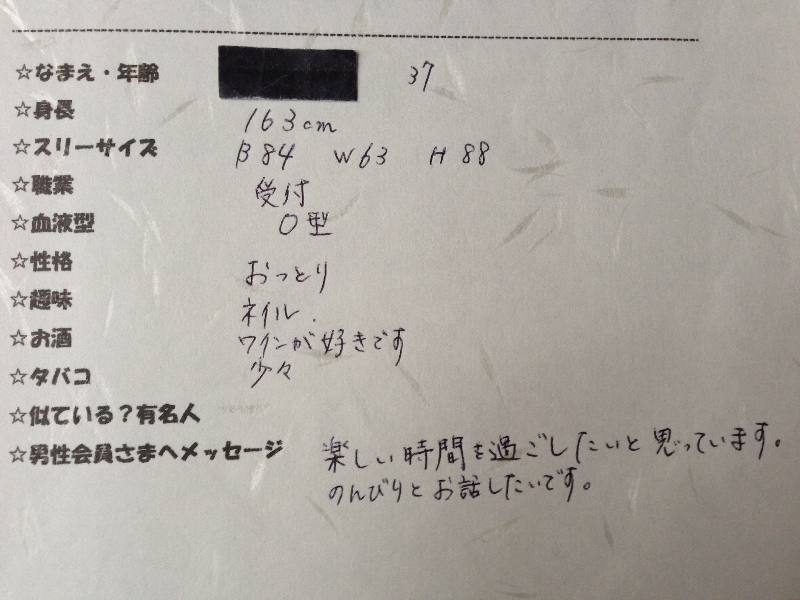 ☆なまえ・年齢 37
☆身長 163cm
☆スリーサイズ B84 W63 H88
☆職業 受付
☆血液型 O型
☆性格 おっとり
☆趣味 ネイル.
☆お酒 ワインが好きです
☆タバコ 少々
☆似ている?有名人
☆男性会員さまへメッセージ 楽しい時間を過ごしたいと思っています。
のんびりとお話したいです。